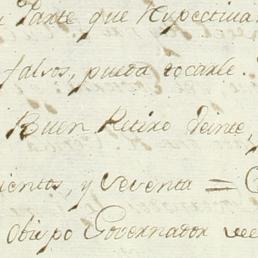 Parte que respectiva
falvos, pueda tocarle.
Buen Retiro veinte,
cientos, y Noventa =
Obispo Governador